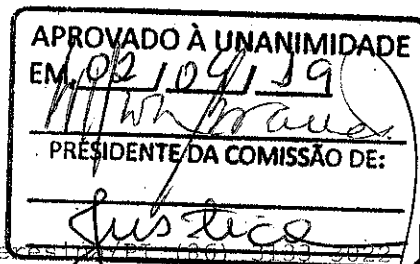 APROVADO À UNANIMIDADE
EM, 02 / 04 / 19
PRESIDENTE DA COMISSÃO DE:
Justiça